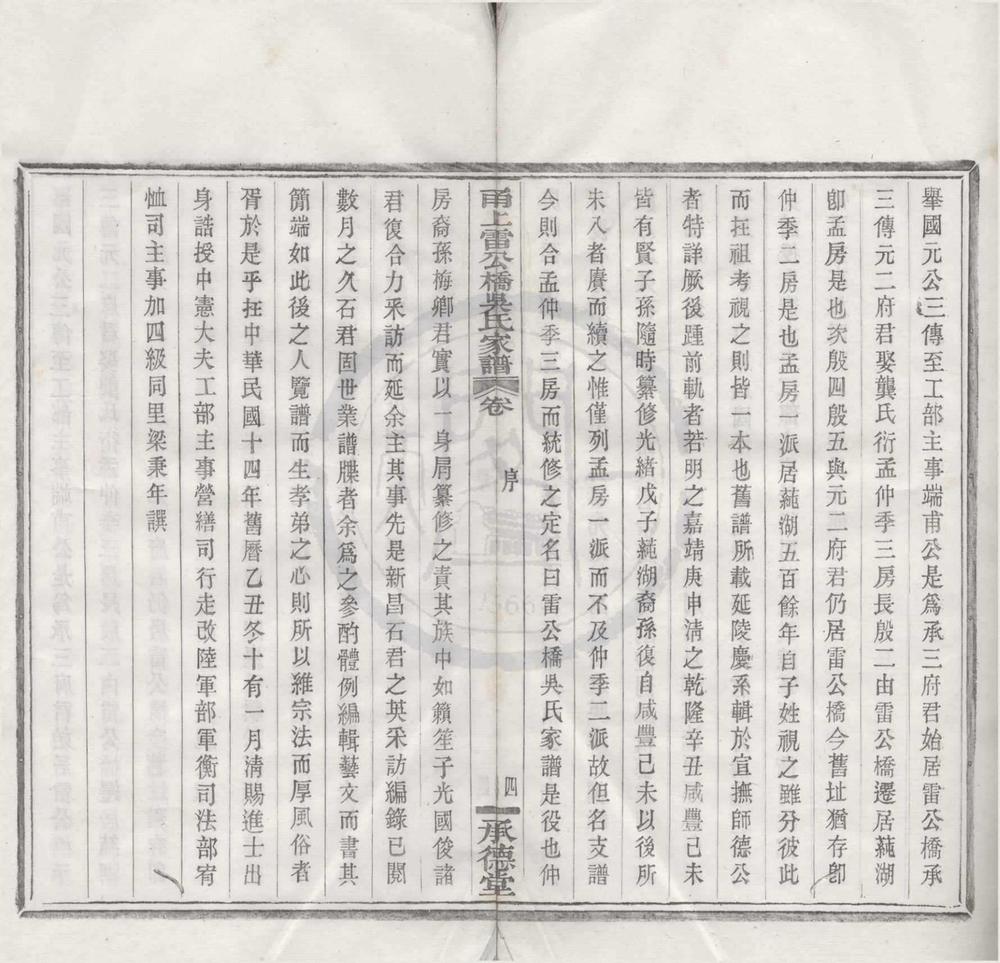 舉國元公三傳至工部主事端甫公是爲承三府君始居雷公橋承
三傳元二府君娶龔氏衍孟仲季三房長殷二由雷公橋遷居蒓湖
卽孟房是也次殷四殷五與元二府君仍居雷公橋今舊址猶存卽
仲季二房是也孟房一派居蒓湖五百餘年自子姓視之雖分彼此
而在祖考視之則皆一本也舊譜所載延陵慶系輯於宣撫師德公
者特詳厥後踵前軌者若明之嘉靖庚申淸之乾隆辛丑咸豐己未
皆有賢子孫隨時纂修光緖戊子蒓湖裔孫復自咸豐己未以後所
未入者賡而續之惟僅列孟房一派而不及仲季二派故但名支譜
今則合孟仲季三房而統修之定名曰雷公橋吳氏家譜是役也仲
甬上雷公橋吳氏家譜 卷 序 四 承德堂
房裔孫梅卿君實以一身肩纂修之責其族中如籟笙子光國俊諸
君復合力釆訪而延余主其事先是新昌石君之英釆訪編錄已閱
數月之久石君固世業譜牒者余爲之參酌體例編輯藝文而書其
簡端如此後之人覽譜而生孝弟之心則所以維宗法而厚風俗者
胥於是乎在中華民國十四年舊曆乙丑冬十有一月淸賜進士出
身誥授中憲大夫工部主事營繕司行走改陸軍部軍衡司法部宥
恤司主事加四級同里梁秉年譔